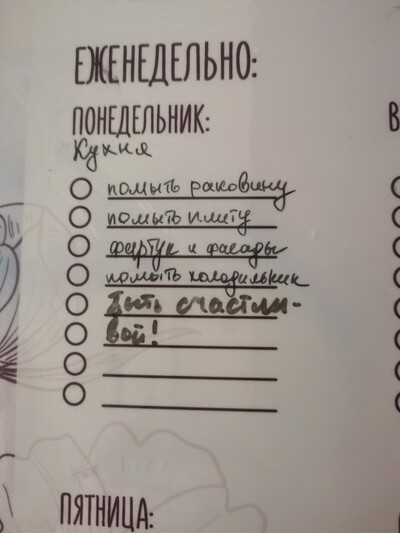 ЕЖЕНЕДЕЛЬНО:
ПОНЕДЕЛЬНИК:
Кухня
помыть раковину
помыть плиту
фартук и фасады
помыть холодильник
Быть счастли-
вой!
В
ПЯТНИЦА: